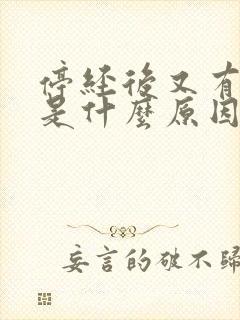 停經後又有
是什麼原因
妄言的破不歸